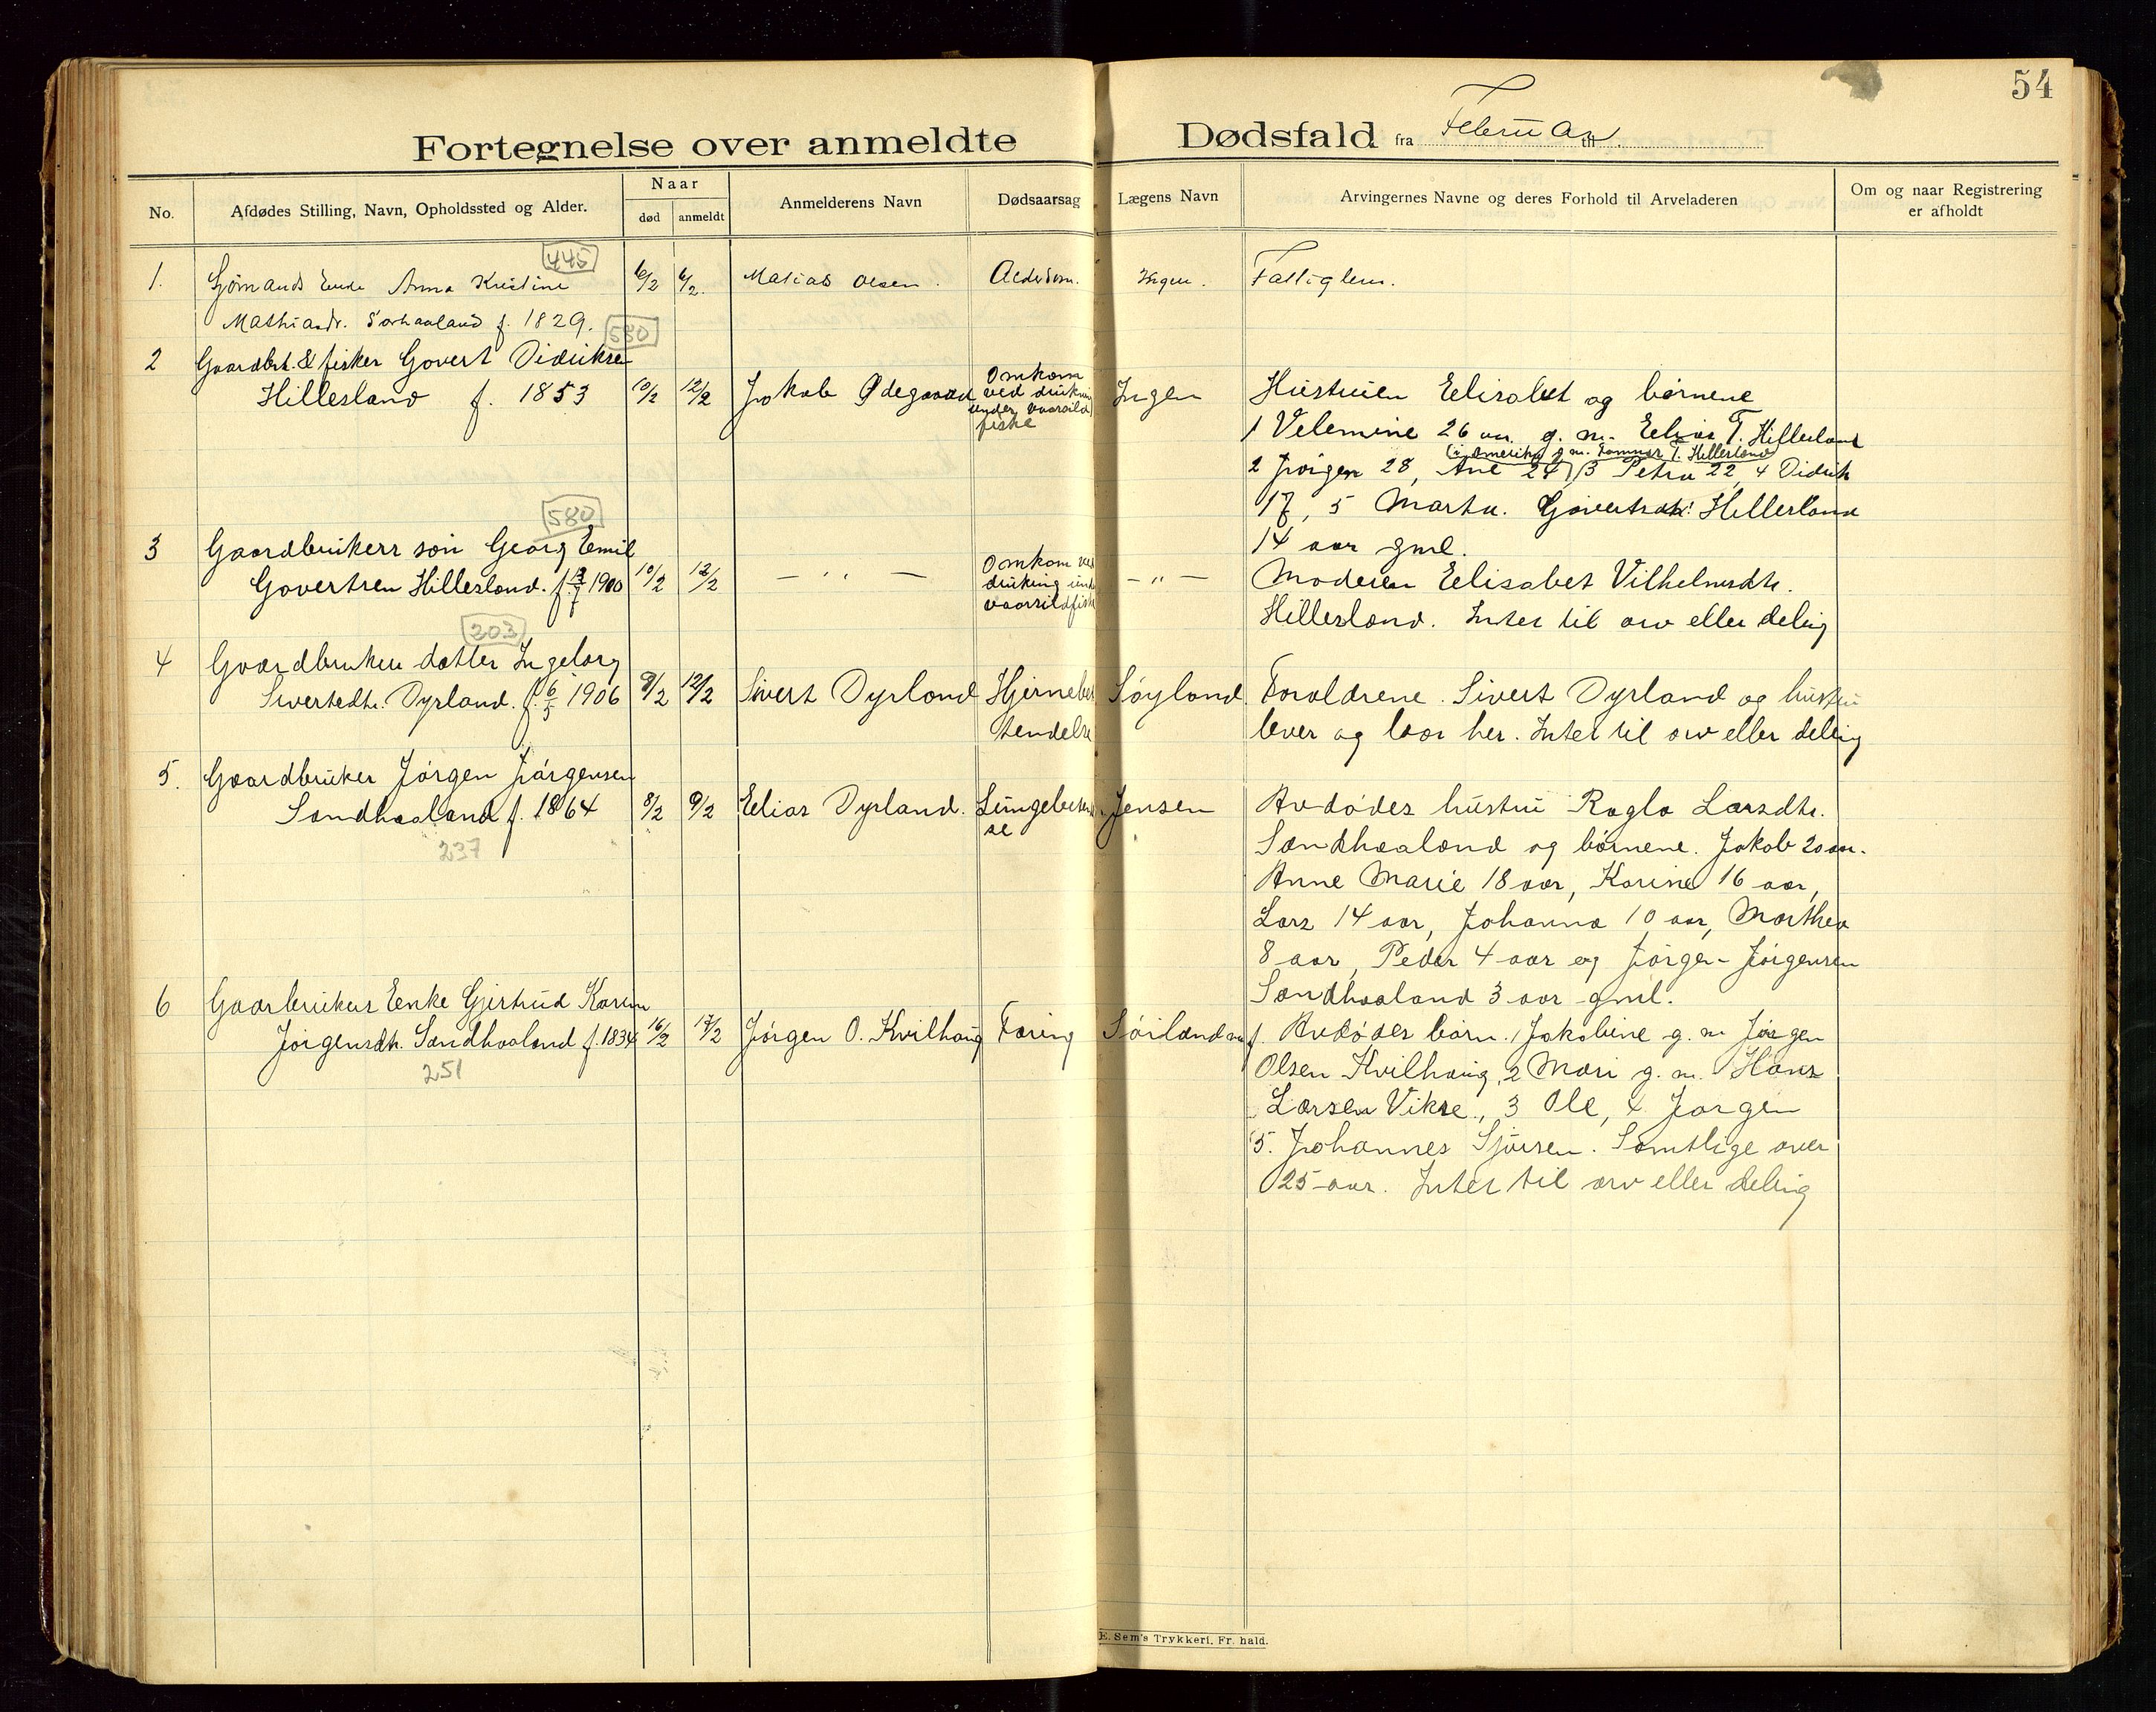 54
Fortegnelse over anmeldte Dødsfald fra Februar til
No.
Afdødes Stilling, Navn, Opholdssted og Alder.
Naar
død
anmeldt
Anmelderens Navn
Dødsaarsag
Lægens Navn
Arvingernes Navne og deres Forhold til Arveladeren
Om og naar Registrering
er afholdt
445
1. Sjømands Enke Anna Kristine 6/2 6/2. Matias Olsen. Alderdom. Ingen. Fattiglem.
Mathiasdr. Sørhaaland f. 1829.
580
2 Gaardbr. & fisker Govert Didriksen
Hillesland f. 1853 10/2 12/2 Jakob Ødegaard
Omkom
ved drukning
under vaarsild
fiske
Ingen
Hustruen Eelisabet og børnene
1 Velemine 26 aar g. m. Eelias T. Hillesland
(i Amerika g m. Tomnes T. Hillesland)
2 Jørgen 28, Ane 24, 3 Petra 22, 4 Didrik
17, 5 Marta. Govertsdtr Hillesland
14 aar gml.
580
3 Gaardbrukers søn Georg Emil
Govertsen Hillesland. f. 1900 10/2 12/2 — " —
Omkom ved
drukning und
vaarsildfisk
— " —
Moderen Eelisabet Vilhelmsdtr.
Hillesland. Intet til arv eller deling
203
4 Gaardbruker datter Ingeborg
Sivertsdtr. Dyrland. f. 6/5 1906 9/2 12/2 Sivert Dyrland Hjernebe
tendelse
Søyland
Forældrene. Sivert Dyrland og hustru
lever og boor her. Intet til arv eller deling
5. Gaardbruker Jørgen Jørgensen
Sandhaaland f. 1864 8/2 9/2 Eelias Dyrland. Lungebeten
se
Jensen
237
Avdødes hustru Ragla Larsdtr.
Sandhaaland og børnene. Jakob 20 aar.
Anne Marie 18 aar, Karine 16 aar,
Lars 14 aar, Johanna 10 aar, Marthea
8 aar, Peder 4 aar og Jørgen Jørgensen
Sandhaaland 3 aar gml.
6 Gaarbrukers Eenke Gjertrud Karine
Jørgensdtr. Sandhaaland f. 1834 16/2 17/2 Jørgen O. Kvilhaug Tæring Søiland
251
Avdødes børn. 1 Jakobine g. m Jørgen
Olsen Kvilhaug, 2 Mari g. m. Hans
Larsen Vikse, 3 Ole, 4 Jørgen
5. Johannes Sjursen. Samtlige over
25 aar. Intet til arv eller deling
E. Sem's Trykkeri, Fr. hald.